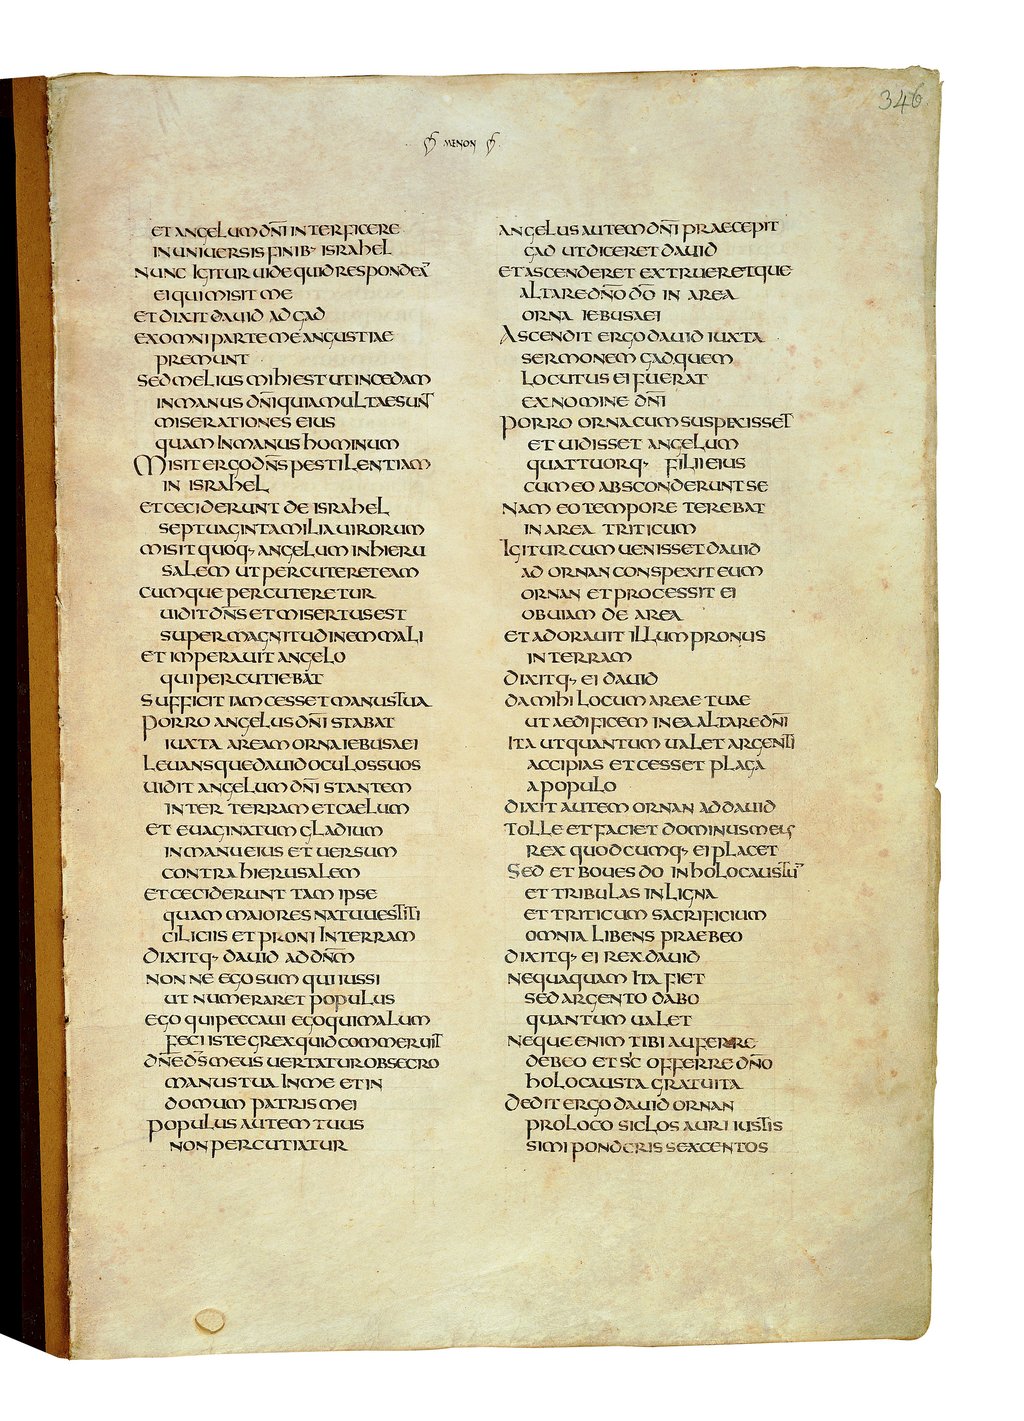 346
MENON
ET ANGELUM DN̄I INTERFICERE
IN UNIUERSIS FINIB· ISRAHEL
NUNC IGITUR UIDE QUID RESPONDEĀ
EI QUI MISIT ME
ET DIXIT DAUID AD GAD
EX OMNI PARTE ME ANGUSTIAE
PREMUNT
SED MELIUS MIHI EST UT INCEDAM
IN MANUS DN̄I QUIA MULTAE SUNT
MISERATIONES EIUS
QUAM IN MANUS HOMINUM
MISIT ERGO DN̄S PESTILENTIAM
IN ISRAHEL
ET CECIDERUNT DE ISRAHEL
SEPTUAGINTA MILIA UIRORUM
MISIT QUOQ· ANGELUM IN HIERU
SALEM UT PERCUTERET EAM
CUMQUE PERCUTERETUR
UIDIT DN̄S ET MISERTUS EST
SUPER MAGNITUDINEM MALI
ET IMPERAUIT ANGELO
QUI PERCUTIEBAT
SUFFICIT IAM CESSET MANUS TUA
PORRO ANGELUS DN̄I STABAT
IUXTA AREAM ORNA IEBUSAEI
LEUANSQUE DAUID OCULOS SUOS
UIDIT ANGELUM DN̄I STANTEM
INTER TERRAM ET CAELUM
ET EUAGINATUM GLADIUM
IN MANU EIUS ET UERSUM
CONTRA HIERUSALEM
ET CECIDERUNT TAM IPSE
QUAM MAIORES NATU UESTITI
CILICIIS ET PRONI IN TERRAM
DIXITQ· DAUID AD DN̄M
NONNE EGO SUM QUI IUSSI
UT NUMERARET POPULUS
EGO QUI PECCAUI EGO QUI MALUM
FECI ISTE GREX QUID COMMERUIT
DN̄E DS̄ MEUS UERTATUR OBSECRO
MANUS TUA IN ME ET IN
DOMUM PATRIS MEI
POPULUS AUTEM TUUS
NON PERCUTIATUR
ANGELUS AUTEM DN̄I PRAECEPIT
GAD UT DICERET DAUID
ET ASCENDERET EXTRUERETQUE
ALTARE DN̄O DŌ IN AREA
ORNA IEBUSAEI
ASCENDIT ERGO DAUID IUXTA
SERMONEM GAD QUEM
LOCUTUS EI FUERAT
EX NOMINE DN̄I
PORRO ORNA CUM SUSPEXISSET
ET UIDISSET ANGELUM
QUATTUORQ· FILII EIUS
CUM EO ABSCONDERUNT SE
NAM EO TEMPORE TEREBAT
IN AREA TRITICUM
IGITUR CUM UENISSET DAUID
AD ORNAN CONSPEXIT EUM
ORNAN ET PROCESSIT EI
OBUIAM DE AREA
ET ADORAUIT ILLUM PRONUS
IN TERRAM
DIXITQ· EI DAUID
DA MIHI LOCUM AREAE TUAE
UT AEDIFICEM IN EA ALTARE DN̄I
ITA UT QUANTUM UALET ARGENTI
ACCIPIAS ET CESSET PLAGA
A POPULO
DIXIT AUTEM ORNAN AD DAUID
TOLLE ET FACIET DOMINUS MEUS
REX QUODCUMQ· EI PLACET
SED ET BOUES DO IN HOLOCAUSTŪ
ET TRIBULAS IN LIGNA
ET TRITICUM SACRIFICIUM
OMNIA LIBENS PRAEBEO
DIXITQ· EI REX DAUID
NEQUAQUAM ITA FIET
SED ARGENTO DABO
QUANTUM UALET
NEQUE ENIM TIBI AUFERRE
DEBEO ET SIC OFFERRE DN̄O
HOLOCAUSTA GRATUITA
DEDIT ERGO DAUID ORNAN
PRO LOCO SICLOS AURI IUSTIS
SIMI PONDERIS SEXCENTOS